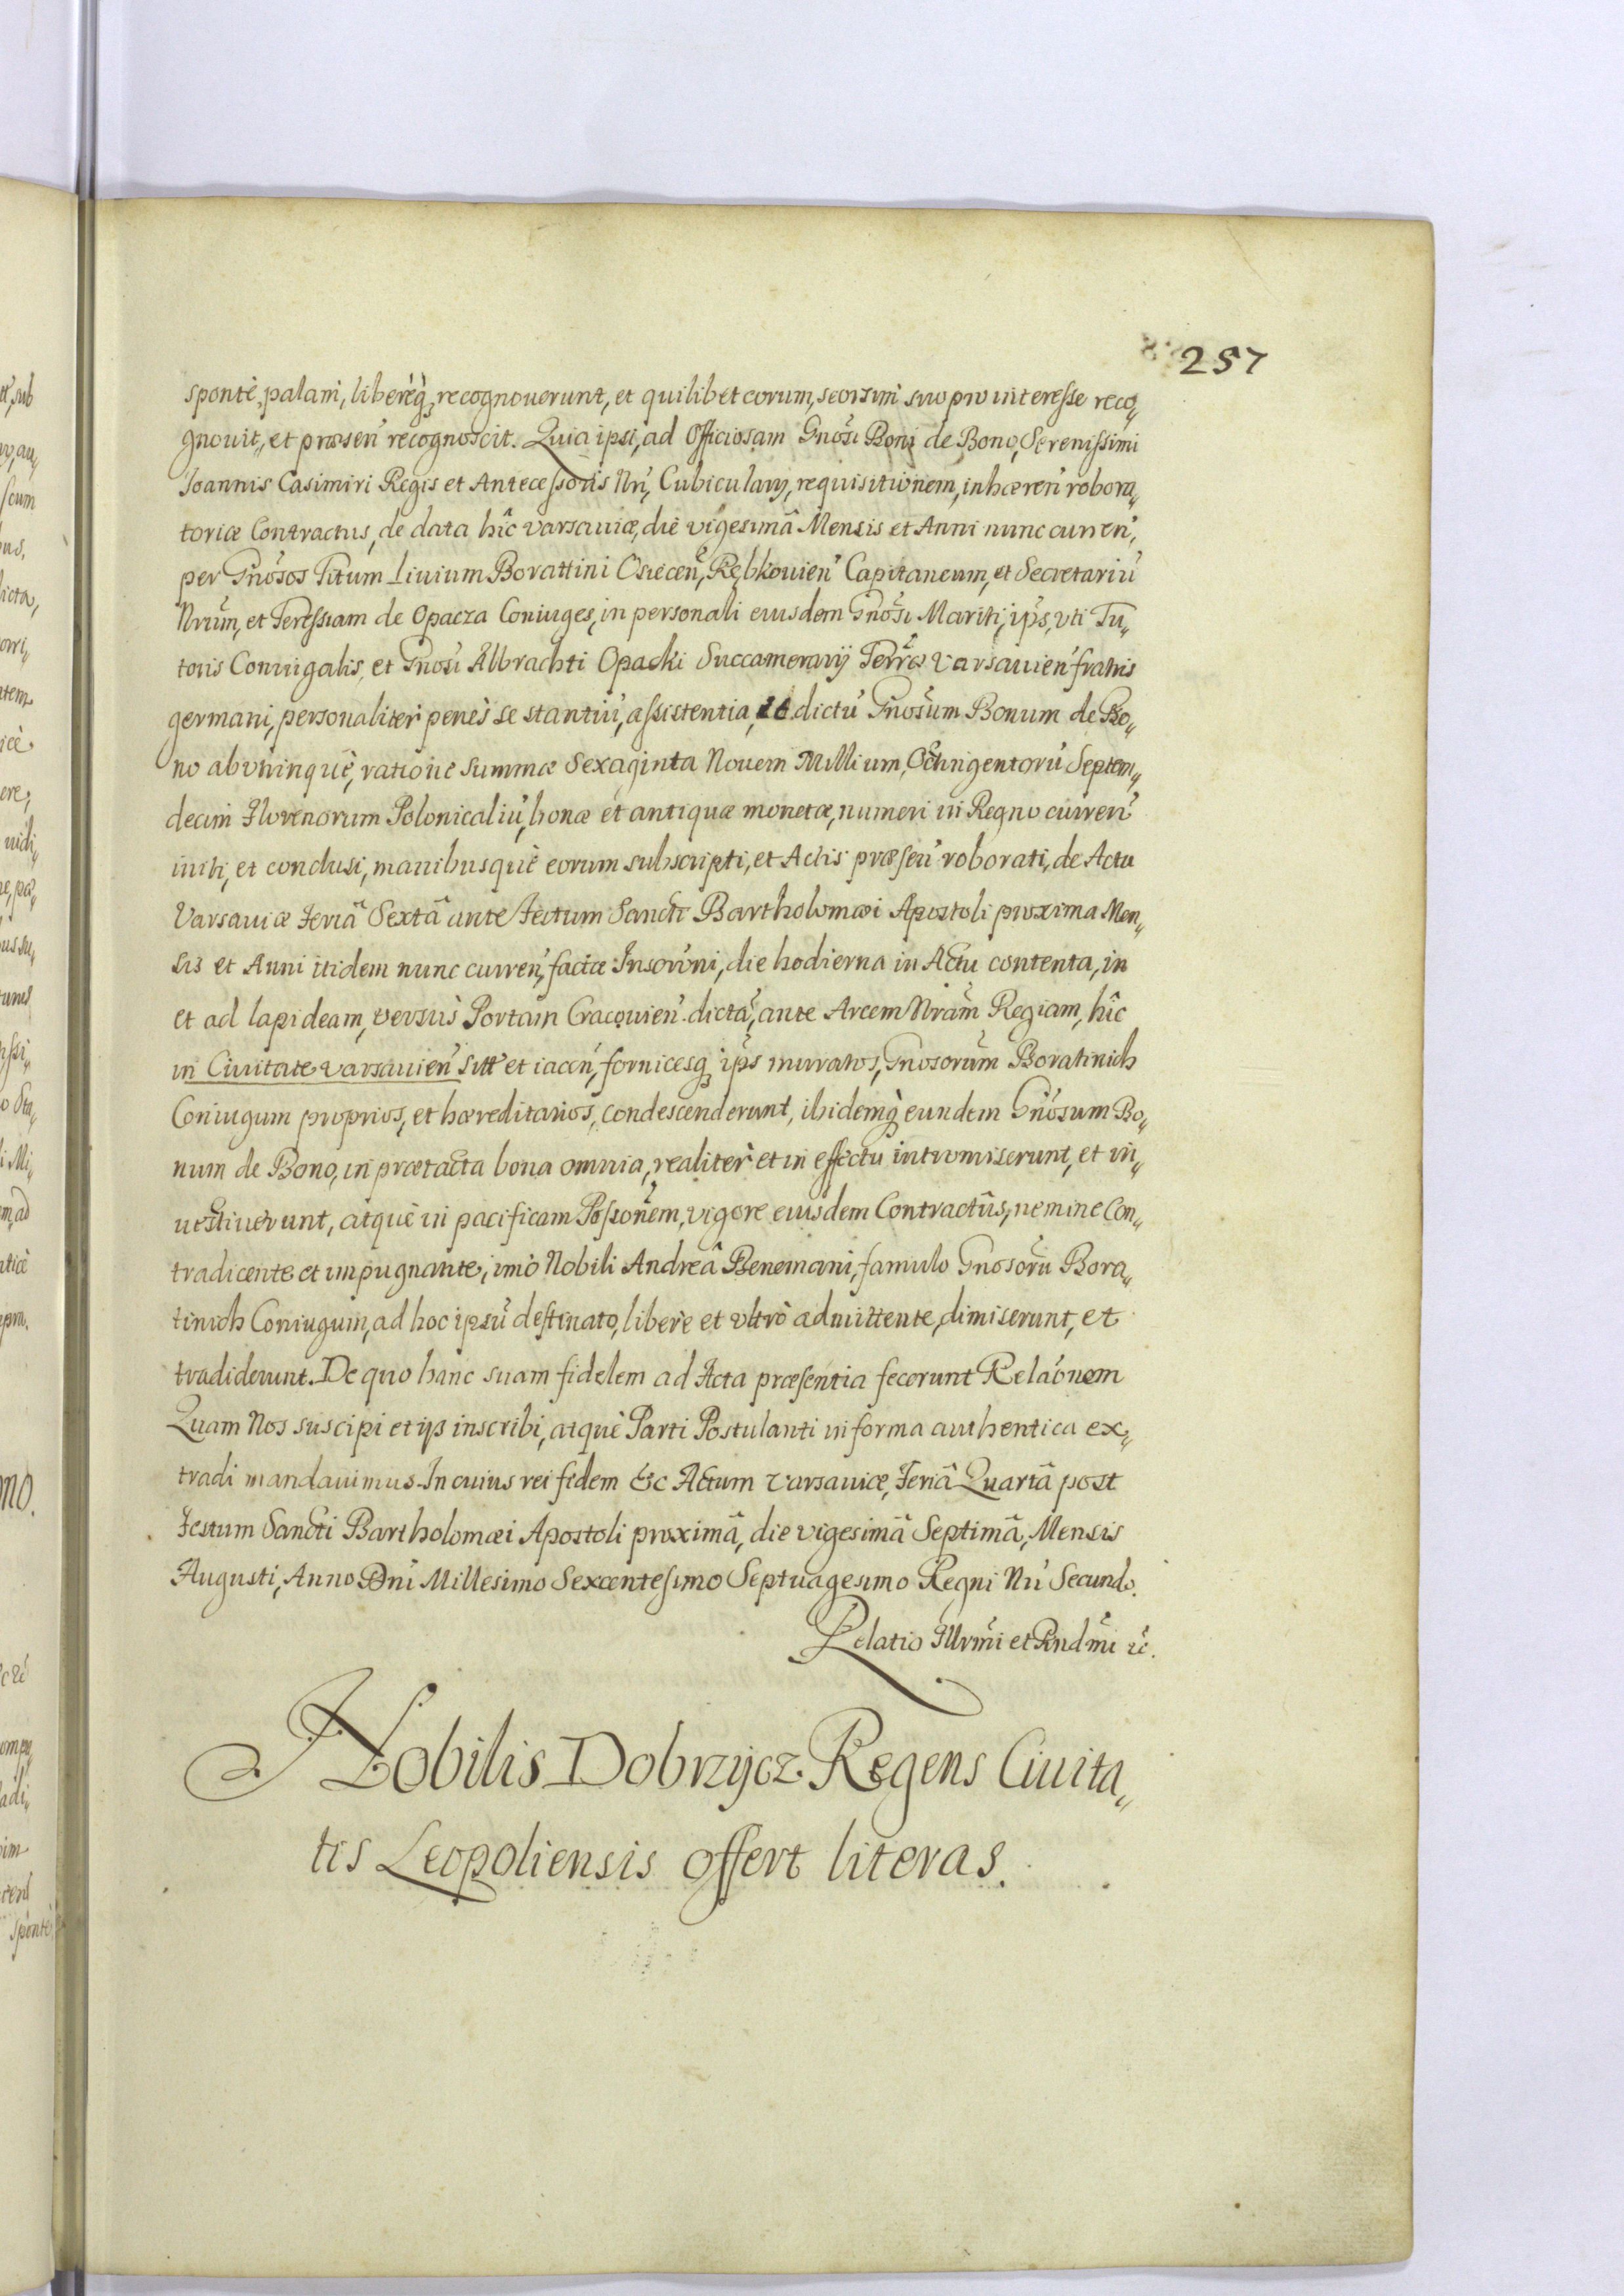 257
spontè, palam, liberèq; recognouerunt, et quilibet eorum, seorsim suo pro interesse reco„
gnouit, et præsen̄ recognoscit. Quia ipsi, ad Officiosam Gnosi Boni de Bono, Serenissimi
Joannis Casimiri Regis et Antecessoris Nrī, Cubicularij, requisitionem, inhæren̄ robora„
toriæ Contractus, de data hîc Varsauiæ, die vigesimâ Mensis et Anni nunc curren̄,
per Gnosos Titum Liuium Borattini Osiecen̄, Rębkouien̄ Capitaneum, et Secretariū
Nrūm, et Teressiam de Opacza Coniuges, in personali eiusdem Gnosi Mariti, ips, vti Tu„
toris Coniugalis, et Gnosi Albrachti Opacki Succamerarij Terræ Varsauien̄ fratris
germani, personaliter penès se stantiū, assistentia, ac dictū Gnosum Bonum de Bo„
no abvtrinquè, ratione summæ Sexaginta Nouem Millium, Octingentorū Septem„
decim Florenorum Polonicaliū, bonæ et antiquæ monetæ, numeri in Regno curren̄
initi, et conclusi, manibusquè eorum subscripti, et Actis præsen̄ roborati, de Actu
Varsauiæ Feriâ Sextâ ante Festum Sancti Bartholomæi Apostoli proxima Men„
sis et Anni itidem nunc curren̄, factæ Inscrōni, die hodierna in Actu contenta, in
et ad lapideam, versùs Portam Cracouien̄ dictā, ante Arcem Nrām Regiam, hîc
in Ciuitate Varsauien̄ sitt et iacen̄, fornicesq; ips murratos, Gnosorum Boratinich
Coniugum proprios, et hæreditarios, condescenderunt, ibidemq; eundem Gnosum Bo„
num de Bono, in prætacta bona omnia, realitèr et in effectu intromiserunt, et in„
uestiuerunt, atquè in pacificam Possonem, vigore eiusdem Contractûs, nemine Con„
tradicente et impugnante, imò Nobili Andreâ Benemani, famulo Gnosorū Bora„
tinich Coniugum, ad hoc ipsū destinato, liberè et vltrò admittente, dimiserunt, et
tradiderunt. De quo hanc suam fidelem ad Acta præsentia fecerunt Relaōnem
Quam Nos suscipi et ijs inscribi, atquè Parti Postulanti in forma authentica ex„
tradi mandauimus. In cuius rei fidem &c Actum Varsauiæ, Feriâ Quartâ post
Festum Sancti Bartholomæi Apostoli proximâ, die vigesimâ Septimâ, Mensis
Augusti, Anno Dnī Millesimo Sexcentesimo Septuagesimo Regni Nrī Secundo.
Relatio Illrmi et Rndmi &c.
Nobilis Dobrzycz Regens Ciuita„
tis Leopoliensis offert literas.